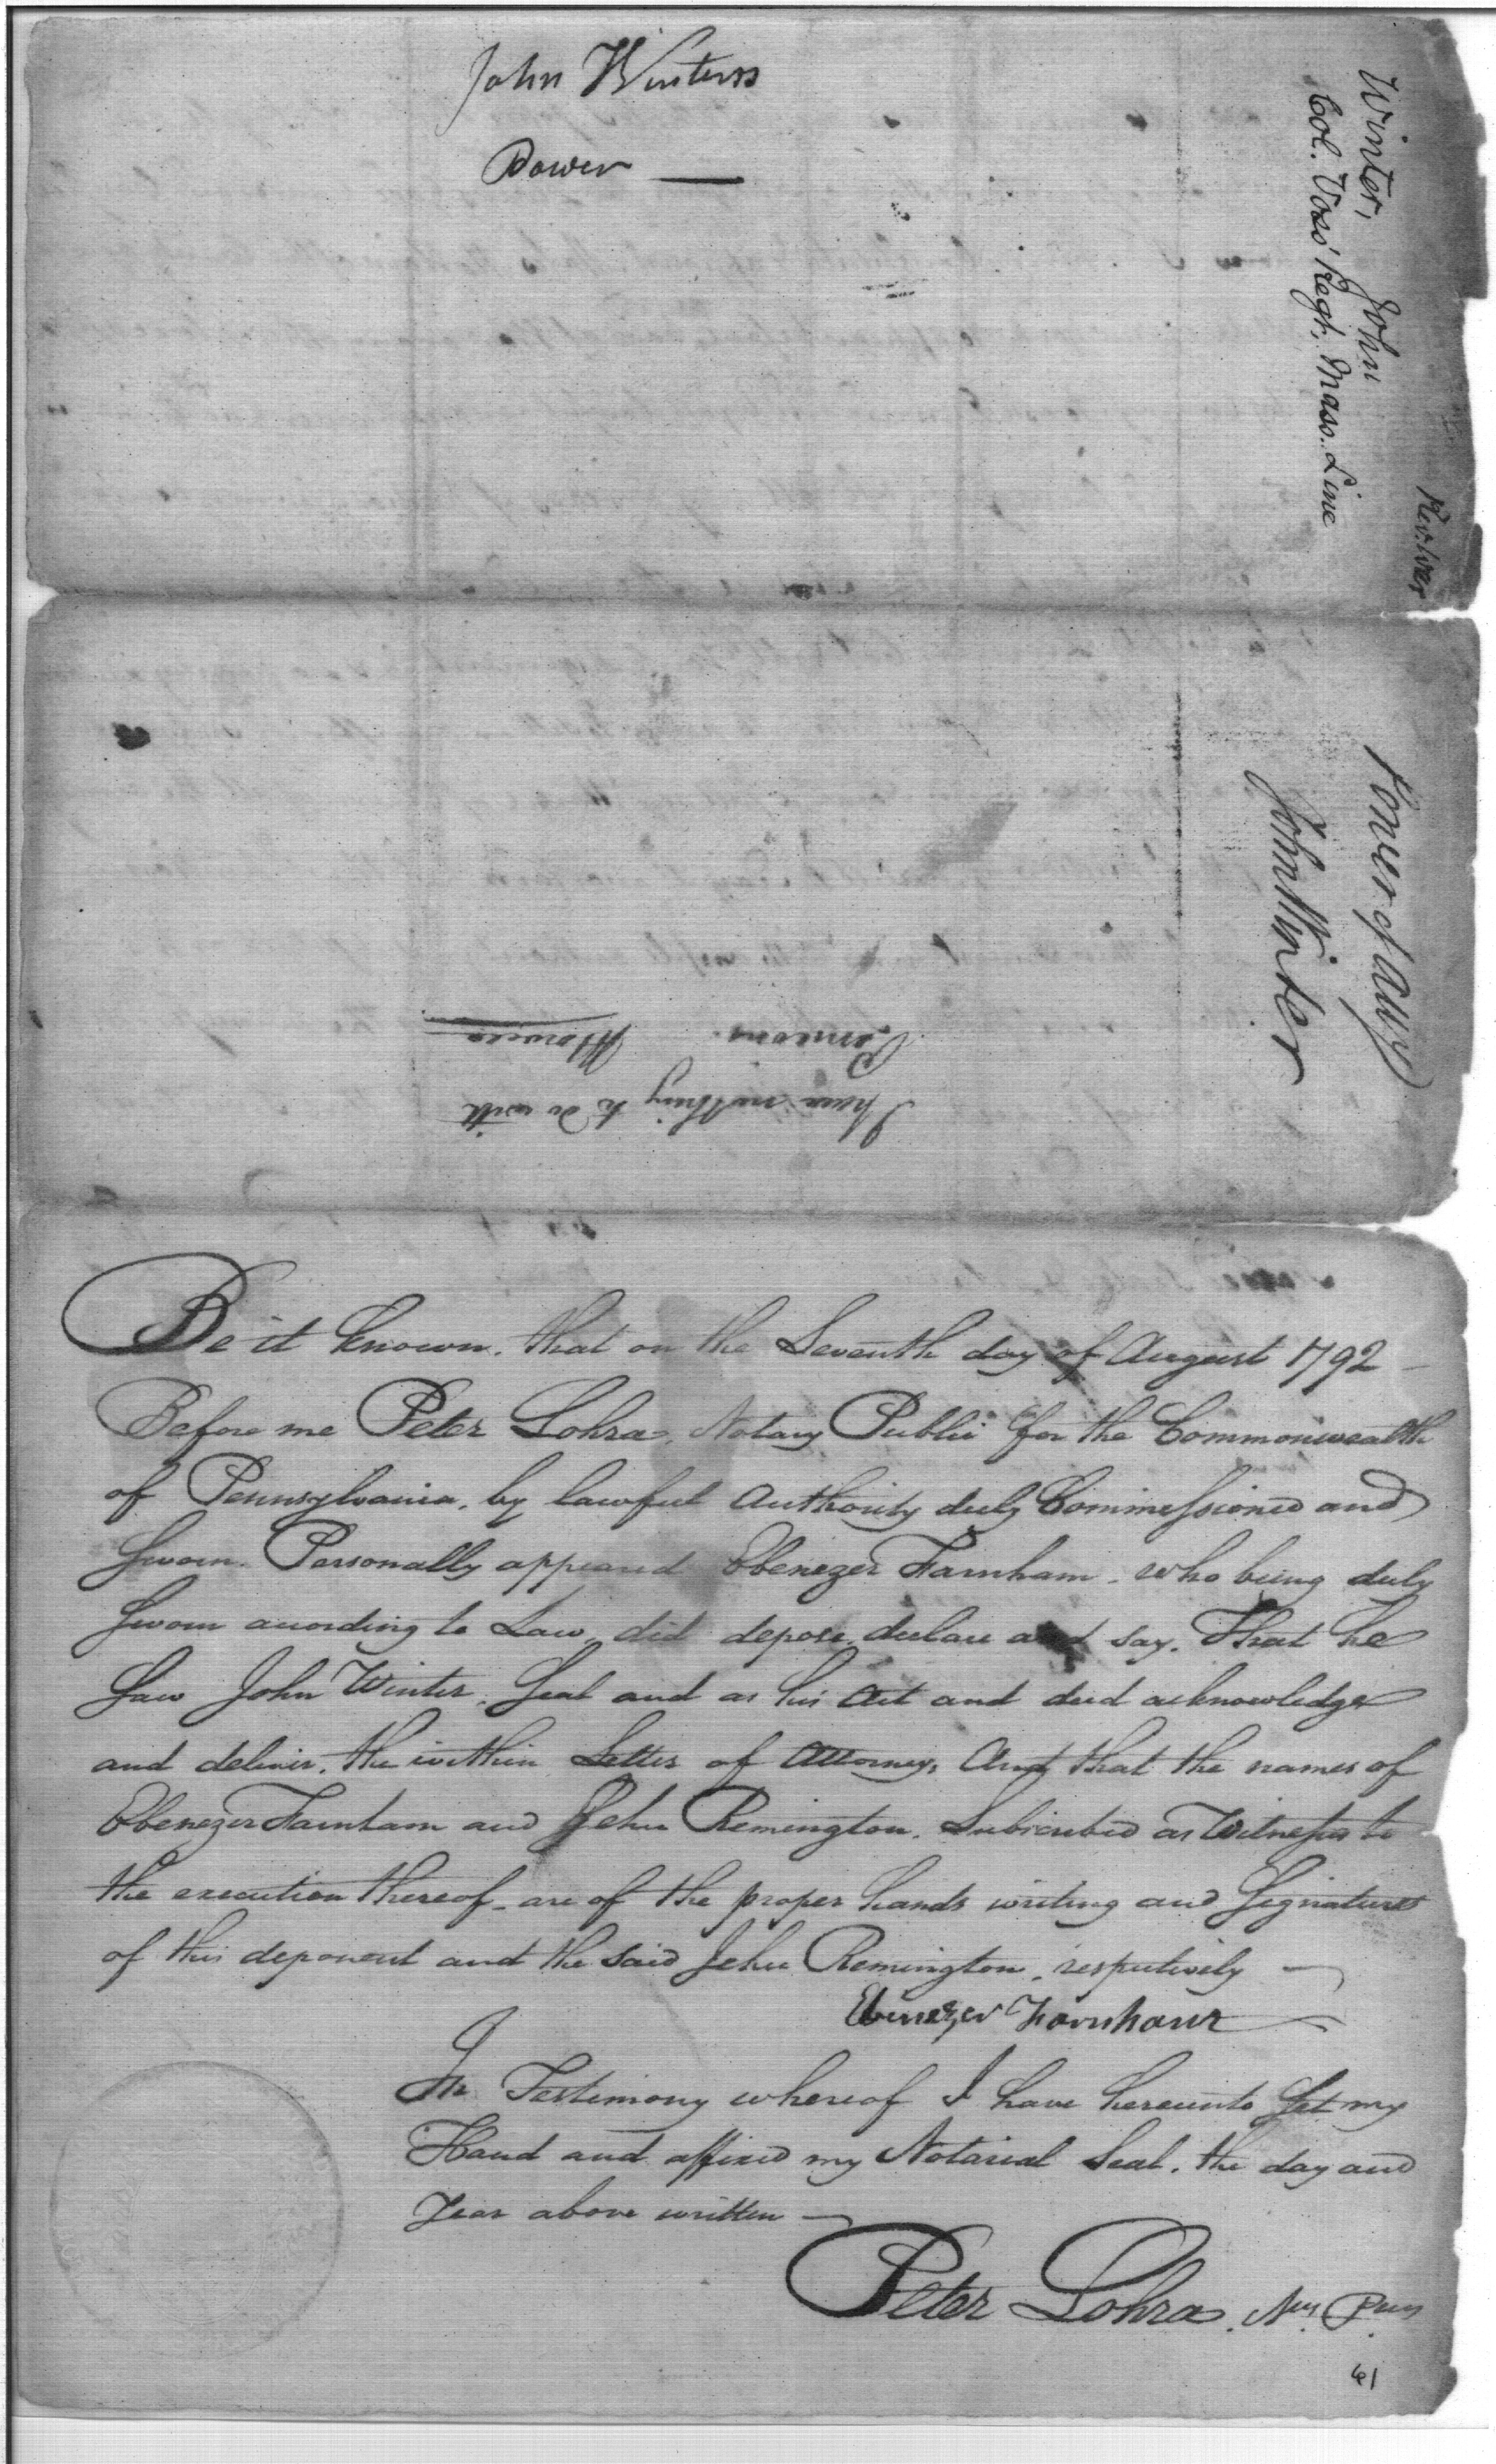 John Winters
Power
Rev. War
Winter, John
Col. Vose' Regt, Mass. Line
Power of Atty
John Winter
I have nothing to do with
Pensions.
Be it known, that on the Seventh day of August 1792
Before me Peter Lohra, Notary Public for the Commonwealth
of Pennsylvania, by lawful Authority duly Commissioned and
Sworn. Personally appeared Ebenezer Farnham, who being duly
Sworn according to Law, did depose, declare and say. That he
Saw John Winter, Seal and as his Act and deed acknowledge
and deliver, the within Letter of Attorney, And that the names of
Ebenezer Farnham and Jehu Remington, Subscribed as Witnesses to
the execution thereof, are of the proper hands writing and Signatures
of this deponent and the said Jehu Remington, respectively
Ebenezer Farnham
In Testimony whereof I have hereunto Set my
Hand and affixed my Notarial Seal, the day and
Year above written
Peter Lohra, Ny. Pub.
41